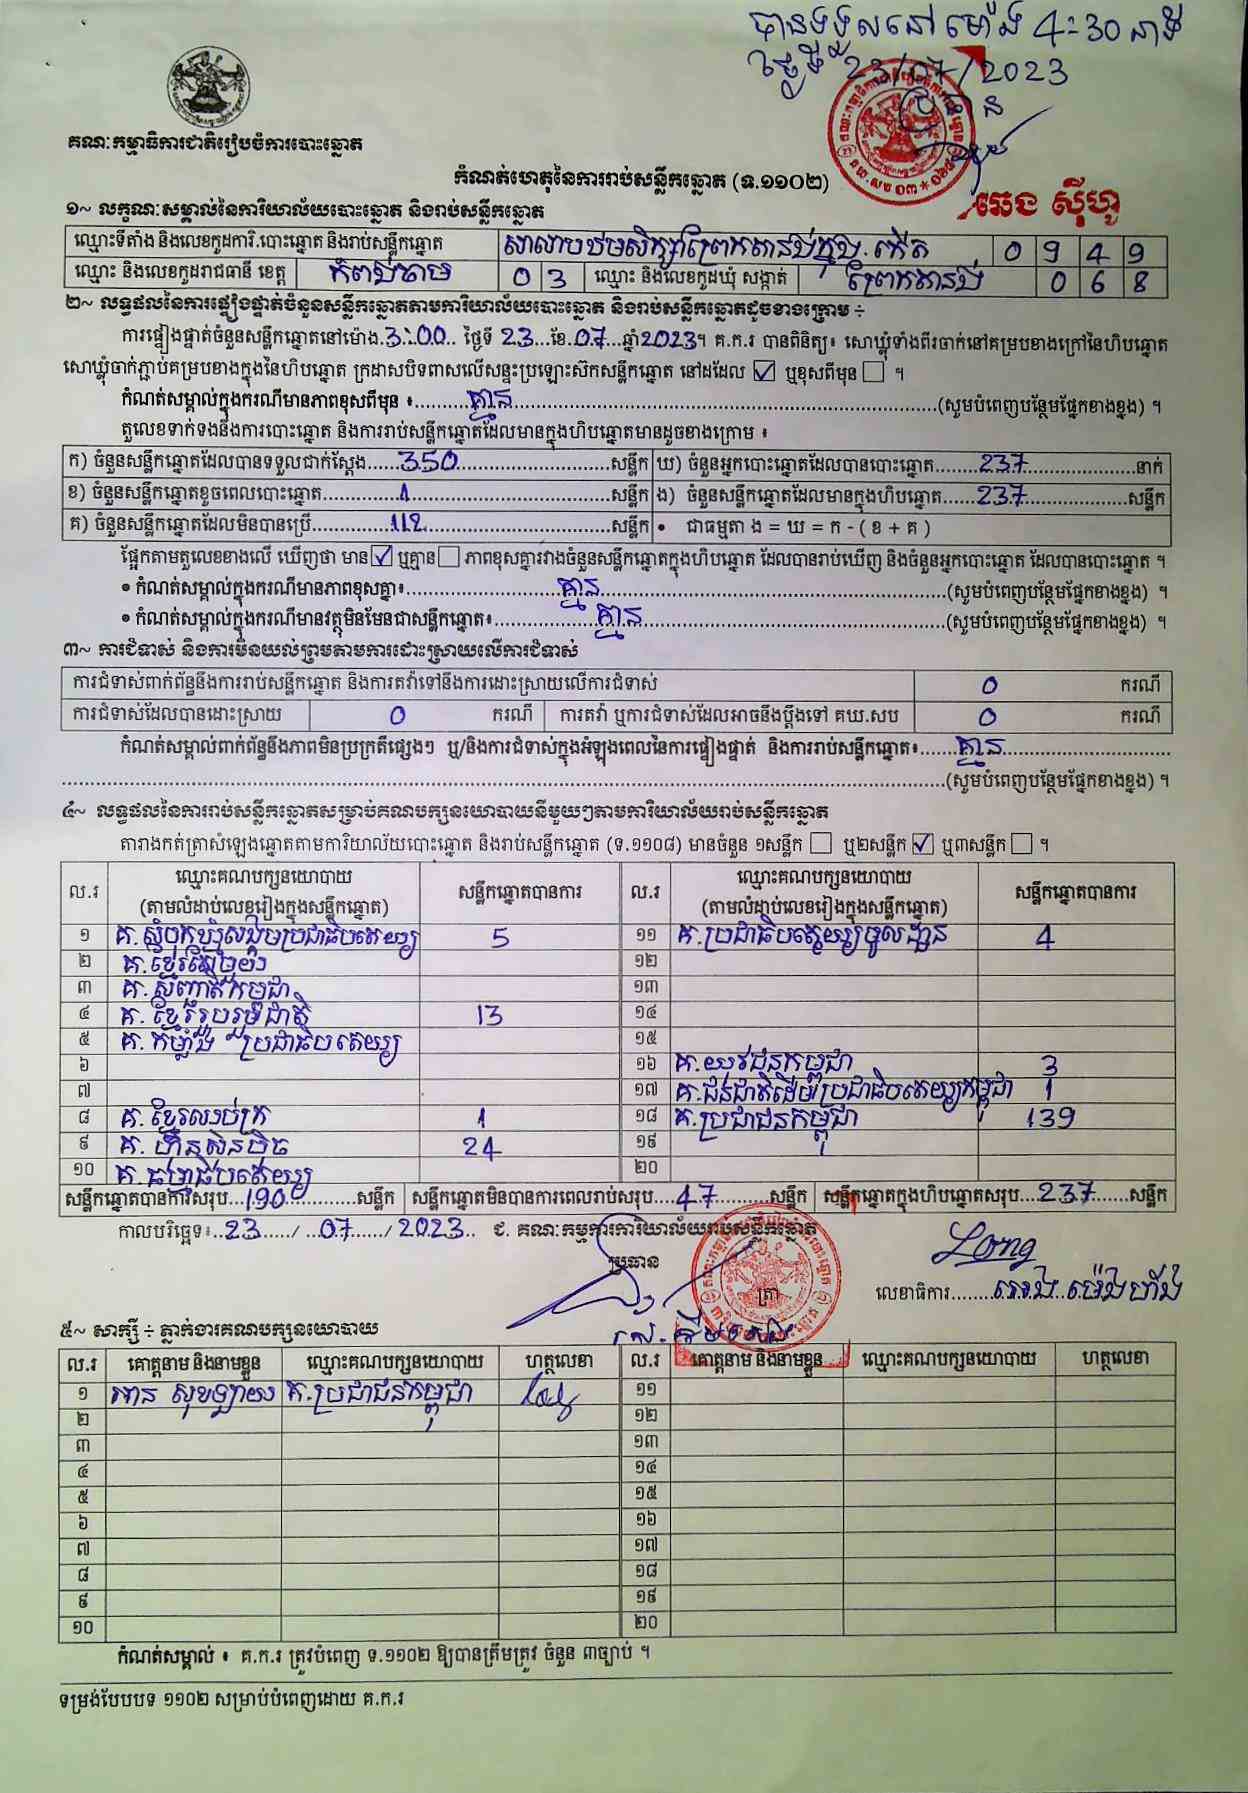 បានទទួលនៅម៉ោង 4:30 នាទី
ថ្ងៃទី 23/07/2023
ប្រធាន
ឆេង ស៊ីហូ
គណៈកម្មាធិការជាតិរៀបចំការបោះឆ្នោត
កំណត់ហេតុនៃការរាប់សន្លឹកឆ្នោត (ទ.១១០២)
១~ លក្ខណៈសម្គាល់នៃការិយាល័យបោះឆ្នោត និងរាប់សន្លឹកឆ្នោត
ឈ្មោះទីតាំង និងលេខកូដការិ.បោះឆ្នោត និងរាប់សន្លឹកឆ្នោត 0 9 4 9
ឈ្មោះ និងលេខកូដរាជធានី ខេត្ត កំពង់ចាម 0 3 ឈ្មោះ និងលេខកូដឃុំ សង្កាត់ 0 6 8
២~ លទ្ធផលនៃការផ្ទៀងផ្ទាត់ចំនួនសន្លឹកឆ្នោតតាមការិយាល័យបោះឆ្នោត និងរាប់សន្លឹកឆ្នោតដូចខាងក្រោម ÷
ការផ្ទៀងផ្ទាត់ចំនួនសន្លឹកឆ្នោតនៅម៉ោង.3:00.. ថ្ងៃទី 23...ខែ.07...ឆ្នាំ2023។ គ.ក.រ បានពិនិត្យ៖ សោឃ្លុំទាំងពីរចាក់នៅគម្របខាងក្រៅនៃហិបឆ្នោត
សោឃ្លុំចាក់ភ្ជាប់គម្របខាងក្នុងនៃហិបឆ្នោត ក្រដាសបិទពាសលើសន្ទះប្រឡោះស៊កសន្លឹកឆ្នោត នៅដដែល ☑ ឬខុសពីមុន ☐ ។
កំណត់សម្គាល់ក្នុងករណីមានភាពខុសពីមុន ៖ គ្មាន (សូមបំពេញបន្ថែមផ្នែកខាងខ្នង) ។
តួលេខទាក់ទងនឹងការបោះឆ្នោត និងការរាប់សន្លឹកឆ្នោតដែលមានក្នុងហិបឆ្នោតមានដូចខាងក្រោម ៖
ក) ចំនួនសន្លឹកឆ្នោតដែលបានទទួលជាក់ស្តែង......350......សន្លឹក ឃ) ចំនួនអ្នកបោះឆ្នោតដែលបានបោះឆ្នោត......237......នាក់
ខ) ចំនួនសន្លឹកឆ្នោតខូចពេលបោះឆ្នោត......1......សន្លឹក ង) ចំនួនសន្លឹកឆ្នោតដែលមានក្នុងហិបឆ្នោត......237......សន្លឹក
គ) ចំនួនសន្លឹកឆ្នោតដែលមិនបានប្រើ......112......សន្លឹក • ជាធម្មតា ង = ឃ = ក - ( ខ + គ )
ផ្អែកតាមតួលេខខាងលើ ឃើញថា មាន ☑ ឬគ្មាន ☐ ភាពខុសគ្នារវាងចំនួនសន្លឹកឆ្នោតក្នុងហិបឆ្នោត ដែលបានរាប់ឃើញ និងចំនួនអ្នកបោះឆ្នោត ដែលបានបោះឆ្នោត ។
• កំណត់សម្គាល់ក្នុងករណីមានភាពខុសគ្នា៖ គ្មាន (សូមបំពេញបន្ថែមផ្នែកខាងខ្នង) ។
• កំណត់សម្គាល់ក្នុងករណីមានវត្ថុមិនមែនជាសន្លឹកឆ្នោត៖ គ្មាន (សូមបំពេញបន្ថែមផ្នែកខាងខ្នង) ។
៣~ ការជំទាស់ និងការមិនយល់ព្រមតាមការដោះស្រាយលើការជំទាស់
ការជំទាស់ពាក់ព័ន្ធនឹងការរាប់សន្លឹកឆ្នោត និងការតវ៉ាទៅនឹងការដោះស្រាយលើការជំទាស់ 0 ករណី
ការជំទាស់ដែលបានដោះស្រាយ 0 ករណី ការតវ៉ា ឬការជំទាស់ដែលអាចនឹងប្តឹងទៅ គឃ.សប 0 ករណី
កំណត់សម្គាល់ពាក់ព័ន្ធនឹងភាពមិនប្រក្រតីផ្សេងៗ ឬ/និងការជំទាស់ក្នុងអំឡុងពេលនៃការផ្ទៀងផ្ទាត់ និងការរាប់សន្លឹកឆ្នោត៖ គ្មាន
(សូមបំពេញបន្ថែមផ្នែកខាងខ្នង) ។
៤~ លទ្ធផលនៃការរាប់សន្លឹកឆ្នោតសម្រាប់គណបក្សនយោបាយនីមួយៗតាមការិយាល័យរាប់សន្លឹកឆ្នោត
តារាងកត់ត្រាសំឡេងឆ្នោតតាមការិយាល័យបោះឆ្នោត និងរាប់សន្លឹកឆ្នោត (ទ.១១០៨) មានចំនួន ១សន្លឹក ☐ ឬ២សន្លឹក ☑ ឬ៣សន្លឹក ☐ ។
ល.រ ឈ្មោះគណបក្សនយោបាយ (តាមលំដាប់លេខរៀងក្នុងសន្លឹកឆ្នោត) សន្លឹកឆ្នោតបានការ ល.រ ឈ្មោះគណបក្សនយោបាយ (តាមលំដាប់លេខរៀងក្នុងសន្លឹកឆ្នោត) សន្លឹកឆ្នោតបានការ
១ គ.សំបុកឃ្មុំសង្គមប្រជាធិបតេយ្យ 5 ១១ គ.ប្រជាធិបតេយ្យមូលដ្ឋាន 4
២ ១២
៣ គ.សញ្ជាតិកម្ពុជា ១៣
៤ គ.ខ្មែររួបរួមជាតិ 13 ១៤
៥ គ.កម្លាំងប្រជាធិបតេយ្យ ១៥
៦ ១៦ គ.យុវជនកម្ពុជា 3
៧ ១៧ គ.ជនជាតិដើមប្រជាធិបតេយ្យកម្ពុជា 1
៨ គ.ខ្មែរឈប់ក្រ 1 ១៨ គ.ប្រជាជនកម្ពុជា 139
៩ គ.ហ៊្វុនស៊ិនប៉ិច 24 ១៩
១០ គ.ធម្មាធិបតេយ្យ ២០
សន្លឹកឆ្នោតបានការសរុប...190......សន្លឹក សន្លឹកឆ្នោតមិនបានការពេលរាប់សរុប...47......សន្លឹក សន្លឹកឆ្នោតក្នុងហិបឆ្នោតសរុប...237......សន្លឹក
កាលបរិច្ឆេទ៖..23...../...07....../2023.. ជ. គណៈកម្មការការិយាល័យរាប់សន្លឹកឆ្នោត
ប្រធាន
Long
ត្រា
លេខាធិការ........
៥~ សាក្សី ÷ ភ្នាក់ងារគណបក្សនយោបាយ
ល.រ គោត្តនាម និងនាមខ្លួន ឈ្មោះគណបក្សនយោបាយ ហត្ថលេខា ល.រ គោត្តនាម និងនាមខ្លួន ឈ្មោះគណបក្សនយោបាយ ហត្ថលេខា
១ គ.ប្រជាជនកម្ពុជា ១១
២ ១២
៣ ១៣
៤ ១៤
៥ ១៥
៦ ១៦
៧ ១៧
៨ ១៨
៩ ១៩
១០ ២០
កំណត់សម្គាល់ ៖ គ.ក.រ ត្រូវបំពេញ ទ.១១០២ ឱ្យបានត្រឹមត្រូវ ចំនួន ៣ច្បាប់ ។
ទម្រង់បែបបទ ១១០២ សម្រាប់បំពេញដោយ គ.ក.រ